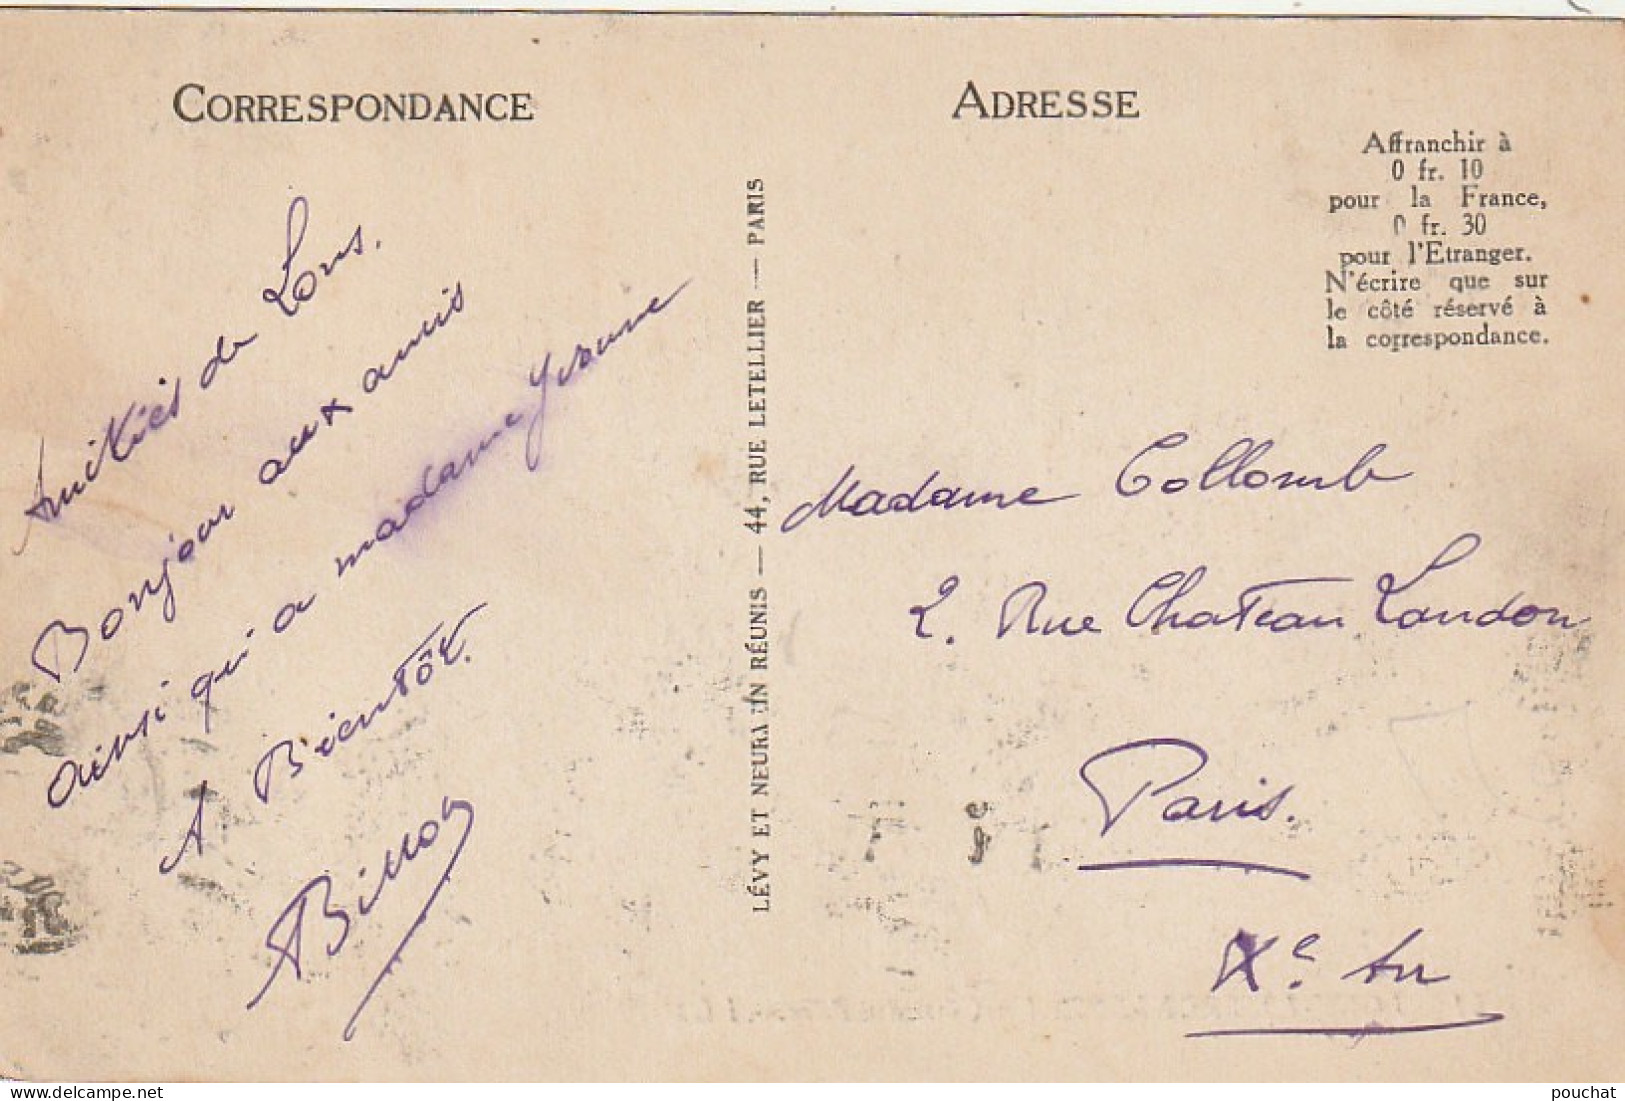 CORRESPONDANCE
Amitiés de Lons.
Bonjour aux amis
ainsi qui a madame Yvonne
A Bientôt.
LÉVY ET NEURDEIN RÉUNIS — 44, RUE LETELLIER — PARIS
ADRESSE
Affranchir à
0 fr. 10
pour la France,
0 fr. 30
pour l'Etranger.
N'écrire que sur
le côté réservé à
la correspondance.
Madame Collomb
2. Rue Chateau Landon
Paris.
Xe Arr
pouchat